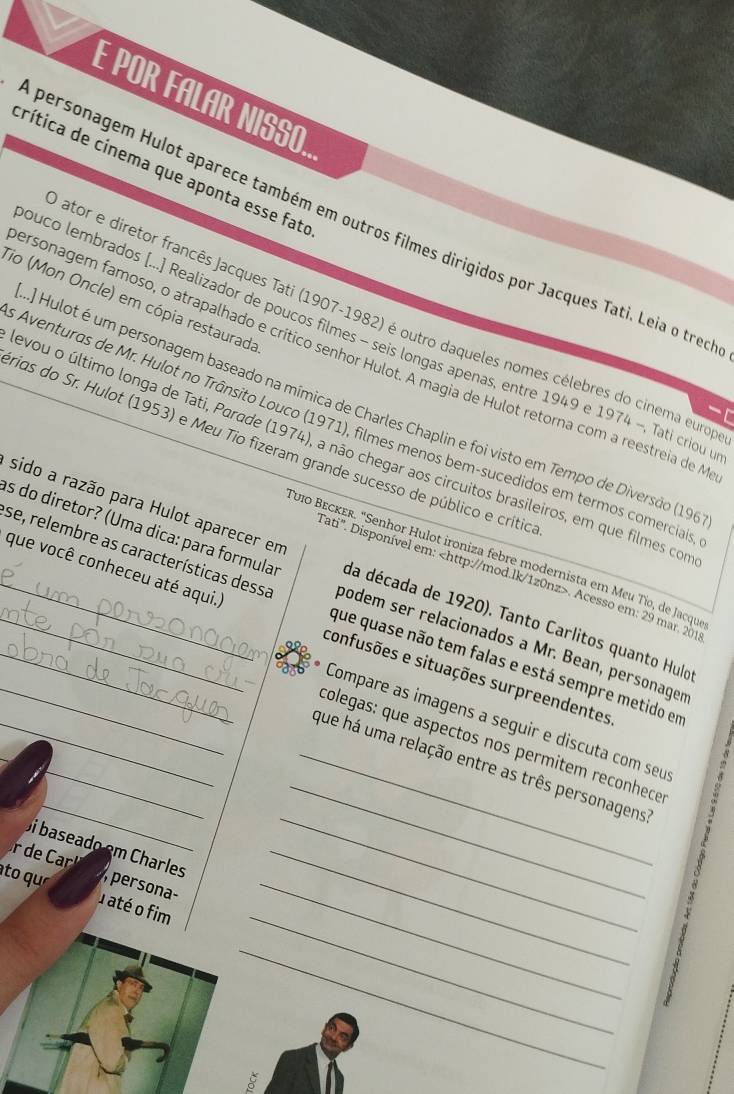 E POR FALAR NISSO...
A personagem Hulot aparece também em outros filmes dirigidos por Jacques Tati. Leia o trecho
crítica de cinema que aponta esse fato.
O ator e diretor francês Jacques Tati (1907-1982) é outro daqueles nomes célebres do cinema europeu
pouco lembrados [...] Realizador de poucos filmes – seis longas apenas, entre 1949 e 1974 –, Tati criou um
personagem famoso, o atrapalhado e crítico senhor Hulot. A magia de Hulot retorna com a reestreia de Meu
Tio (Mon Oncle) em cópia restaurada.
[...] Hulot é um personagem baseado na mímica de Charles Chaplin e foi visto em Tempo de Diversão (1967)
As Aventuras de Mr. Hulot no Trânsito Louco (1971), filmes menos bem-sucedidos em termos comerciais, o
e levou o último longa de Tati, Parade (1974), a não chegar aos circuitos brasileiros, em que filmes como
Férias do Sr. Hulot (1953) e Meu Tio fizeram grande sucesso de público e crítica.
TUIO BECKER. "Senhor Hulot ironiza febre modernista em Meu Tio, de Jacques
Tati". Disponível em: <http://mod.lk/1z0nz>. Acesso em: 29 mar. 2018.
sido a razão para Hulot aparecer em
as do diretor? (Uma dica: para formular
esse, relembre as características dessa
que você conheceu até aqui.)
é um personagem
nte por sua cri-
obra de Jacques
i baseado em Charles
r de Carl , persona-
ato qu
u até o fim
da década de 1920). Tanto Carlitos quanto Hulot
podem ser relacionados a Mr. Bean, personagem
que quase não tem falas e está sempre metido em
confusões e situações surpreendentes.
• Compare as imagens a seguir e discuta com seus
colegas: que aspectos nos permitem reconhecer
que há uma relação entre as três personagens?
Reprodução proibida. Art. 184 do Código Penal e Lei 9.610 de 19 de
TOCK